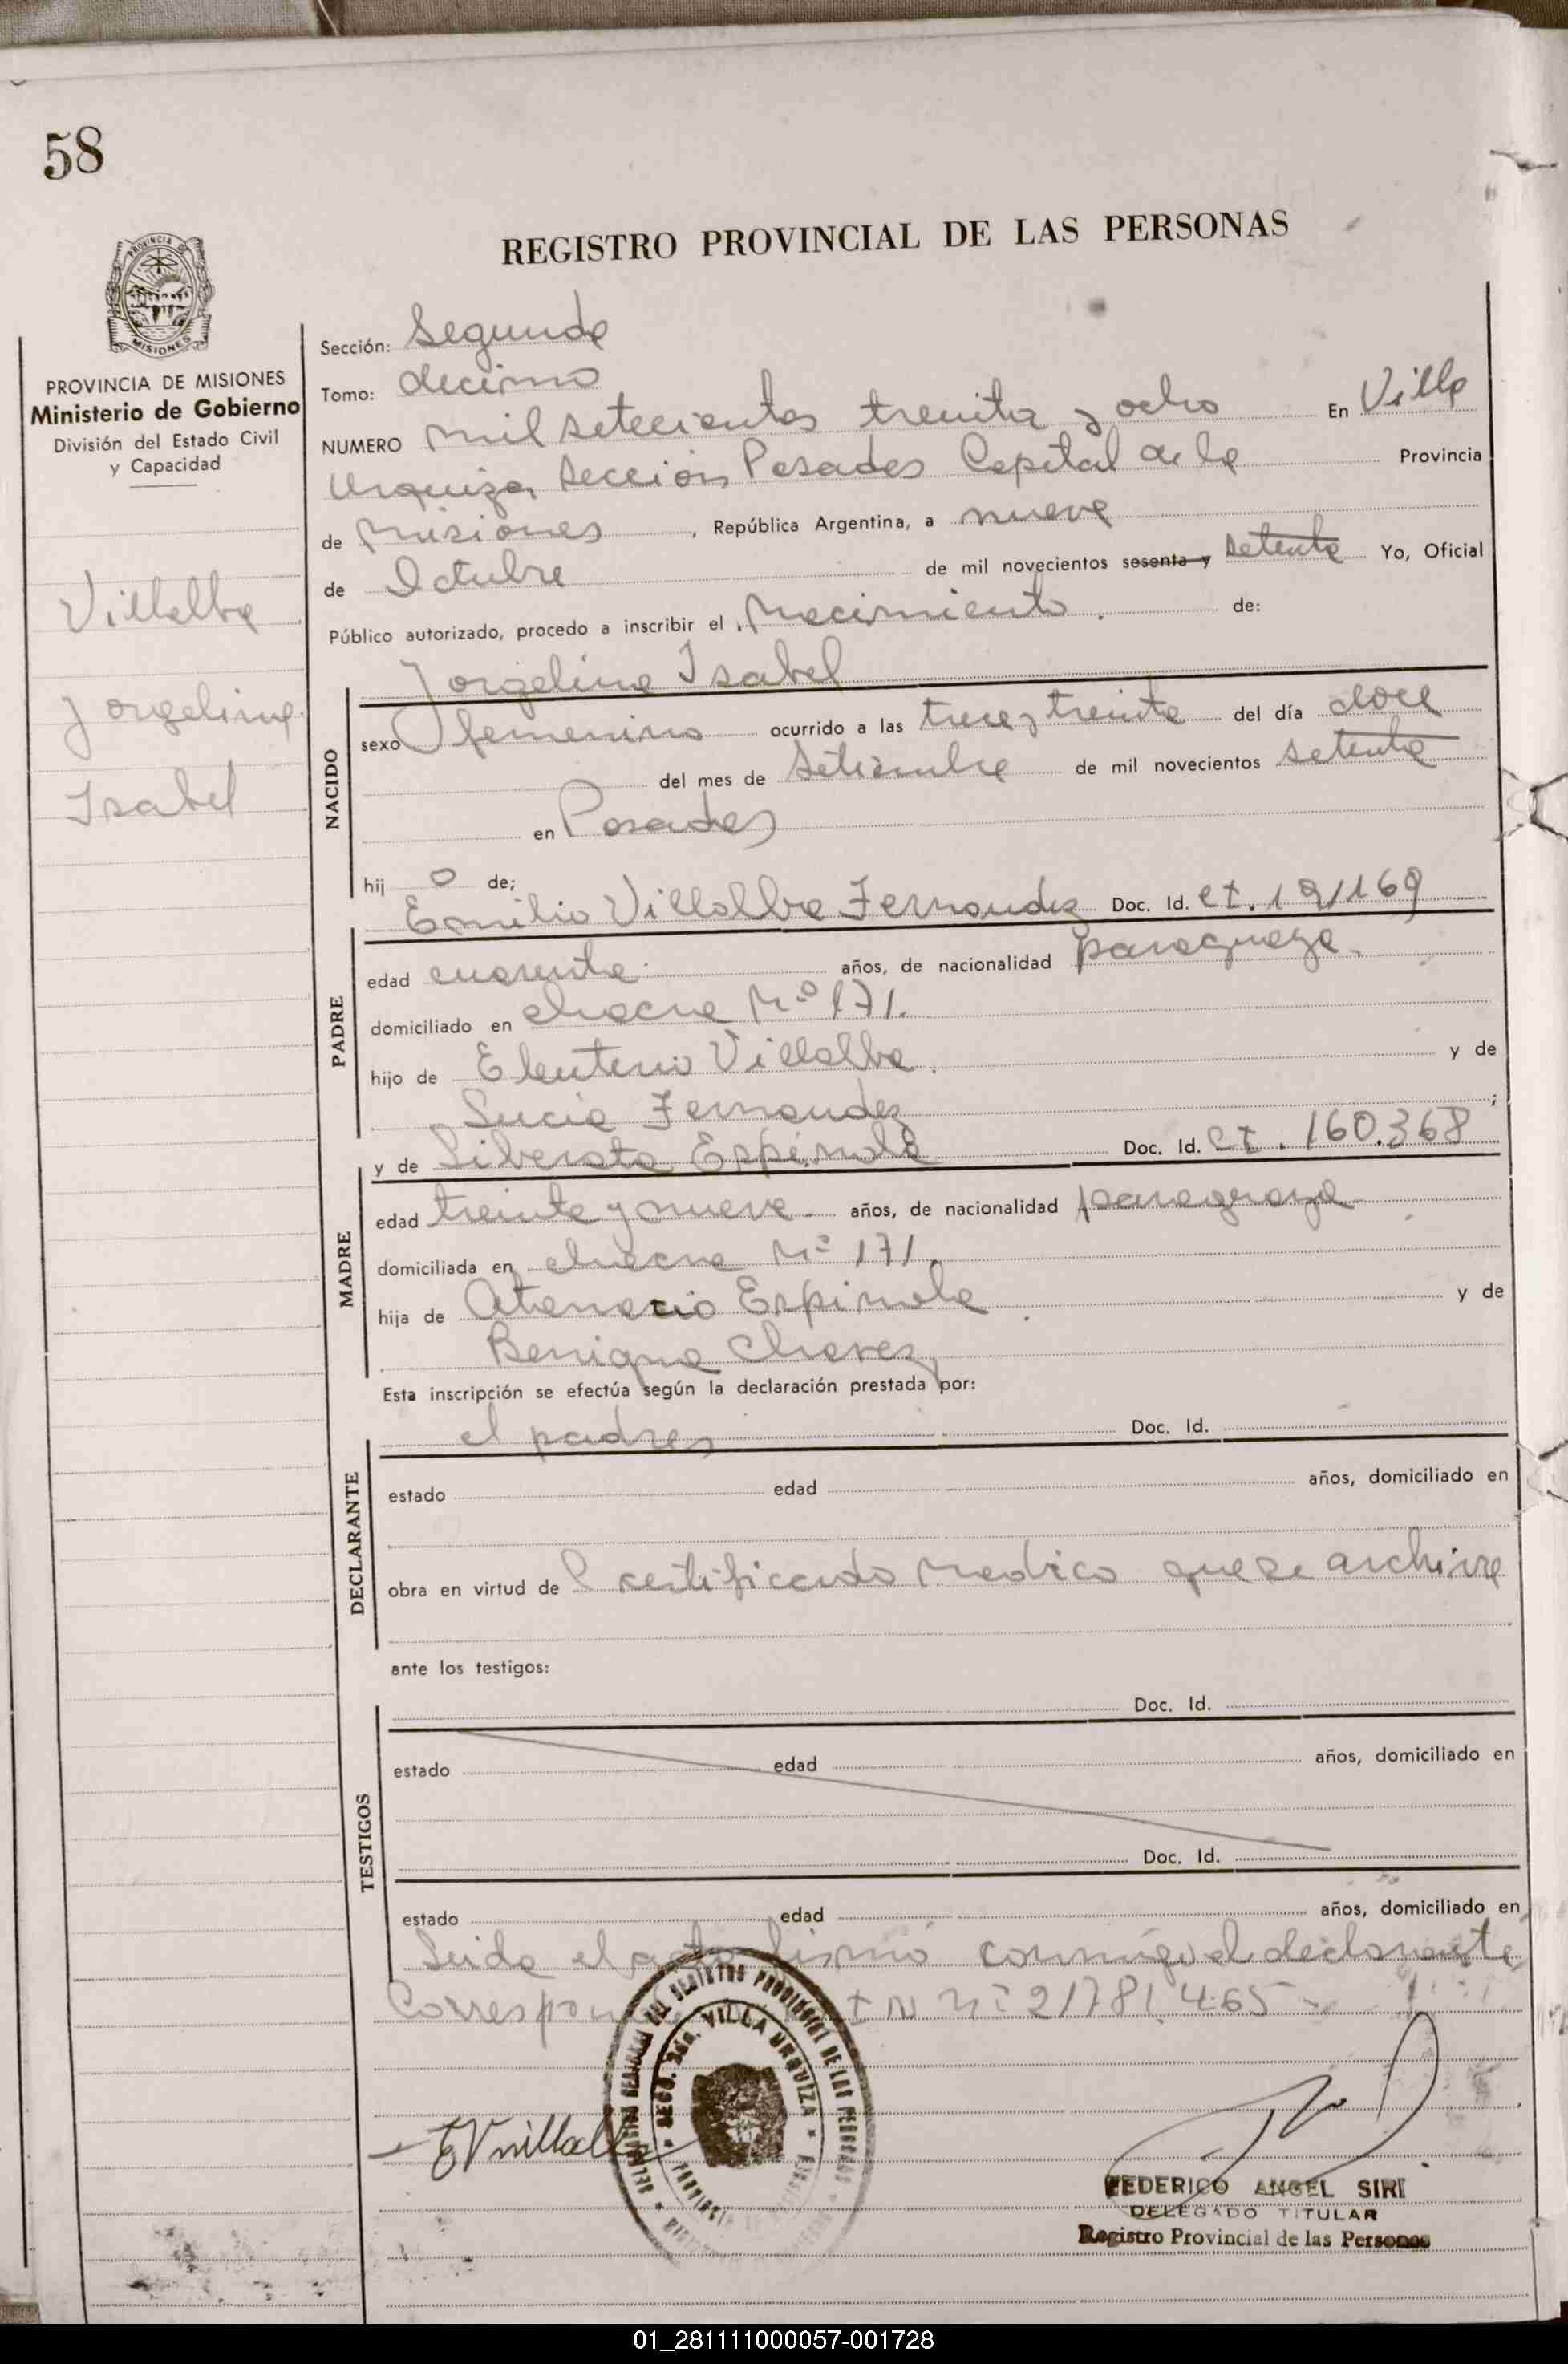 58
REGISTRO PROVINCIAL DE LAS PERSONAS
PROVINCIA DE
MISIONES
PROVINCIA DE MISIONES
Ministerio de Gobierno
División del Estado Civil
y Capacidad
Villalba
Jorgelina
Isabel
Sección: Segunda
Tomo: decimo
NUMERO mil setecientos treinta y ocho En Villa
Urquiza Sección Posadas Capital de la Provincia
de Misiones , República Argentina, a nueve
de Octubre de mil novecientos sesenta y setenta Yo, Oficial
Público autorizado, procedo a inscribir el Nacimiento de:
Jorgelina Isabel
NACIDO
sexo femenino ocurrido a las trece y treinta del día doce
del mes de Setiembre de mil novecientos setenta
en Posadas
hij o de;
Emilio Villalba Fernandez Doc. Id. 191169
PADRE
edad cuarenta años, de nacionalidad paraguaya
domiciliado en chacra Nº 171.
hijo de Eleuterio Villalba y de
Lucia Fernandez ;
y de Liberata Espinola Doc. Id. 160.368
MADRE
edad treinta y nueve años, de nacionalidad paraguaya
domiciliada en chacra Nº 171.
hija de Atanacio Espinola y de
Benigna Chavez
Esta inscripción se efectúa según la declaración prestada por:
el padres Doc. Id.
DECLARANTE
estado edad años, domiciliado en
obra en virtud de l certificado medico que se archiva
ante los testigos:
Doc. Id.
TESTIGOS
estado edad años, domiciliado en
Doc. Id.
estado edad años, domiciliado en
Leida el acta firmó conmigo el declarante
Correspon Nº 21781.465
SECC. 2da. VILLA URQUIZA
EVillalba
FEDERICO ANGEL SIRI
DELEGADO TITULAR
Registro Provincial de las Personas
01_281111000057-001728